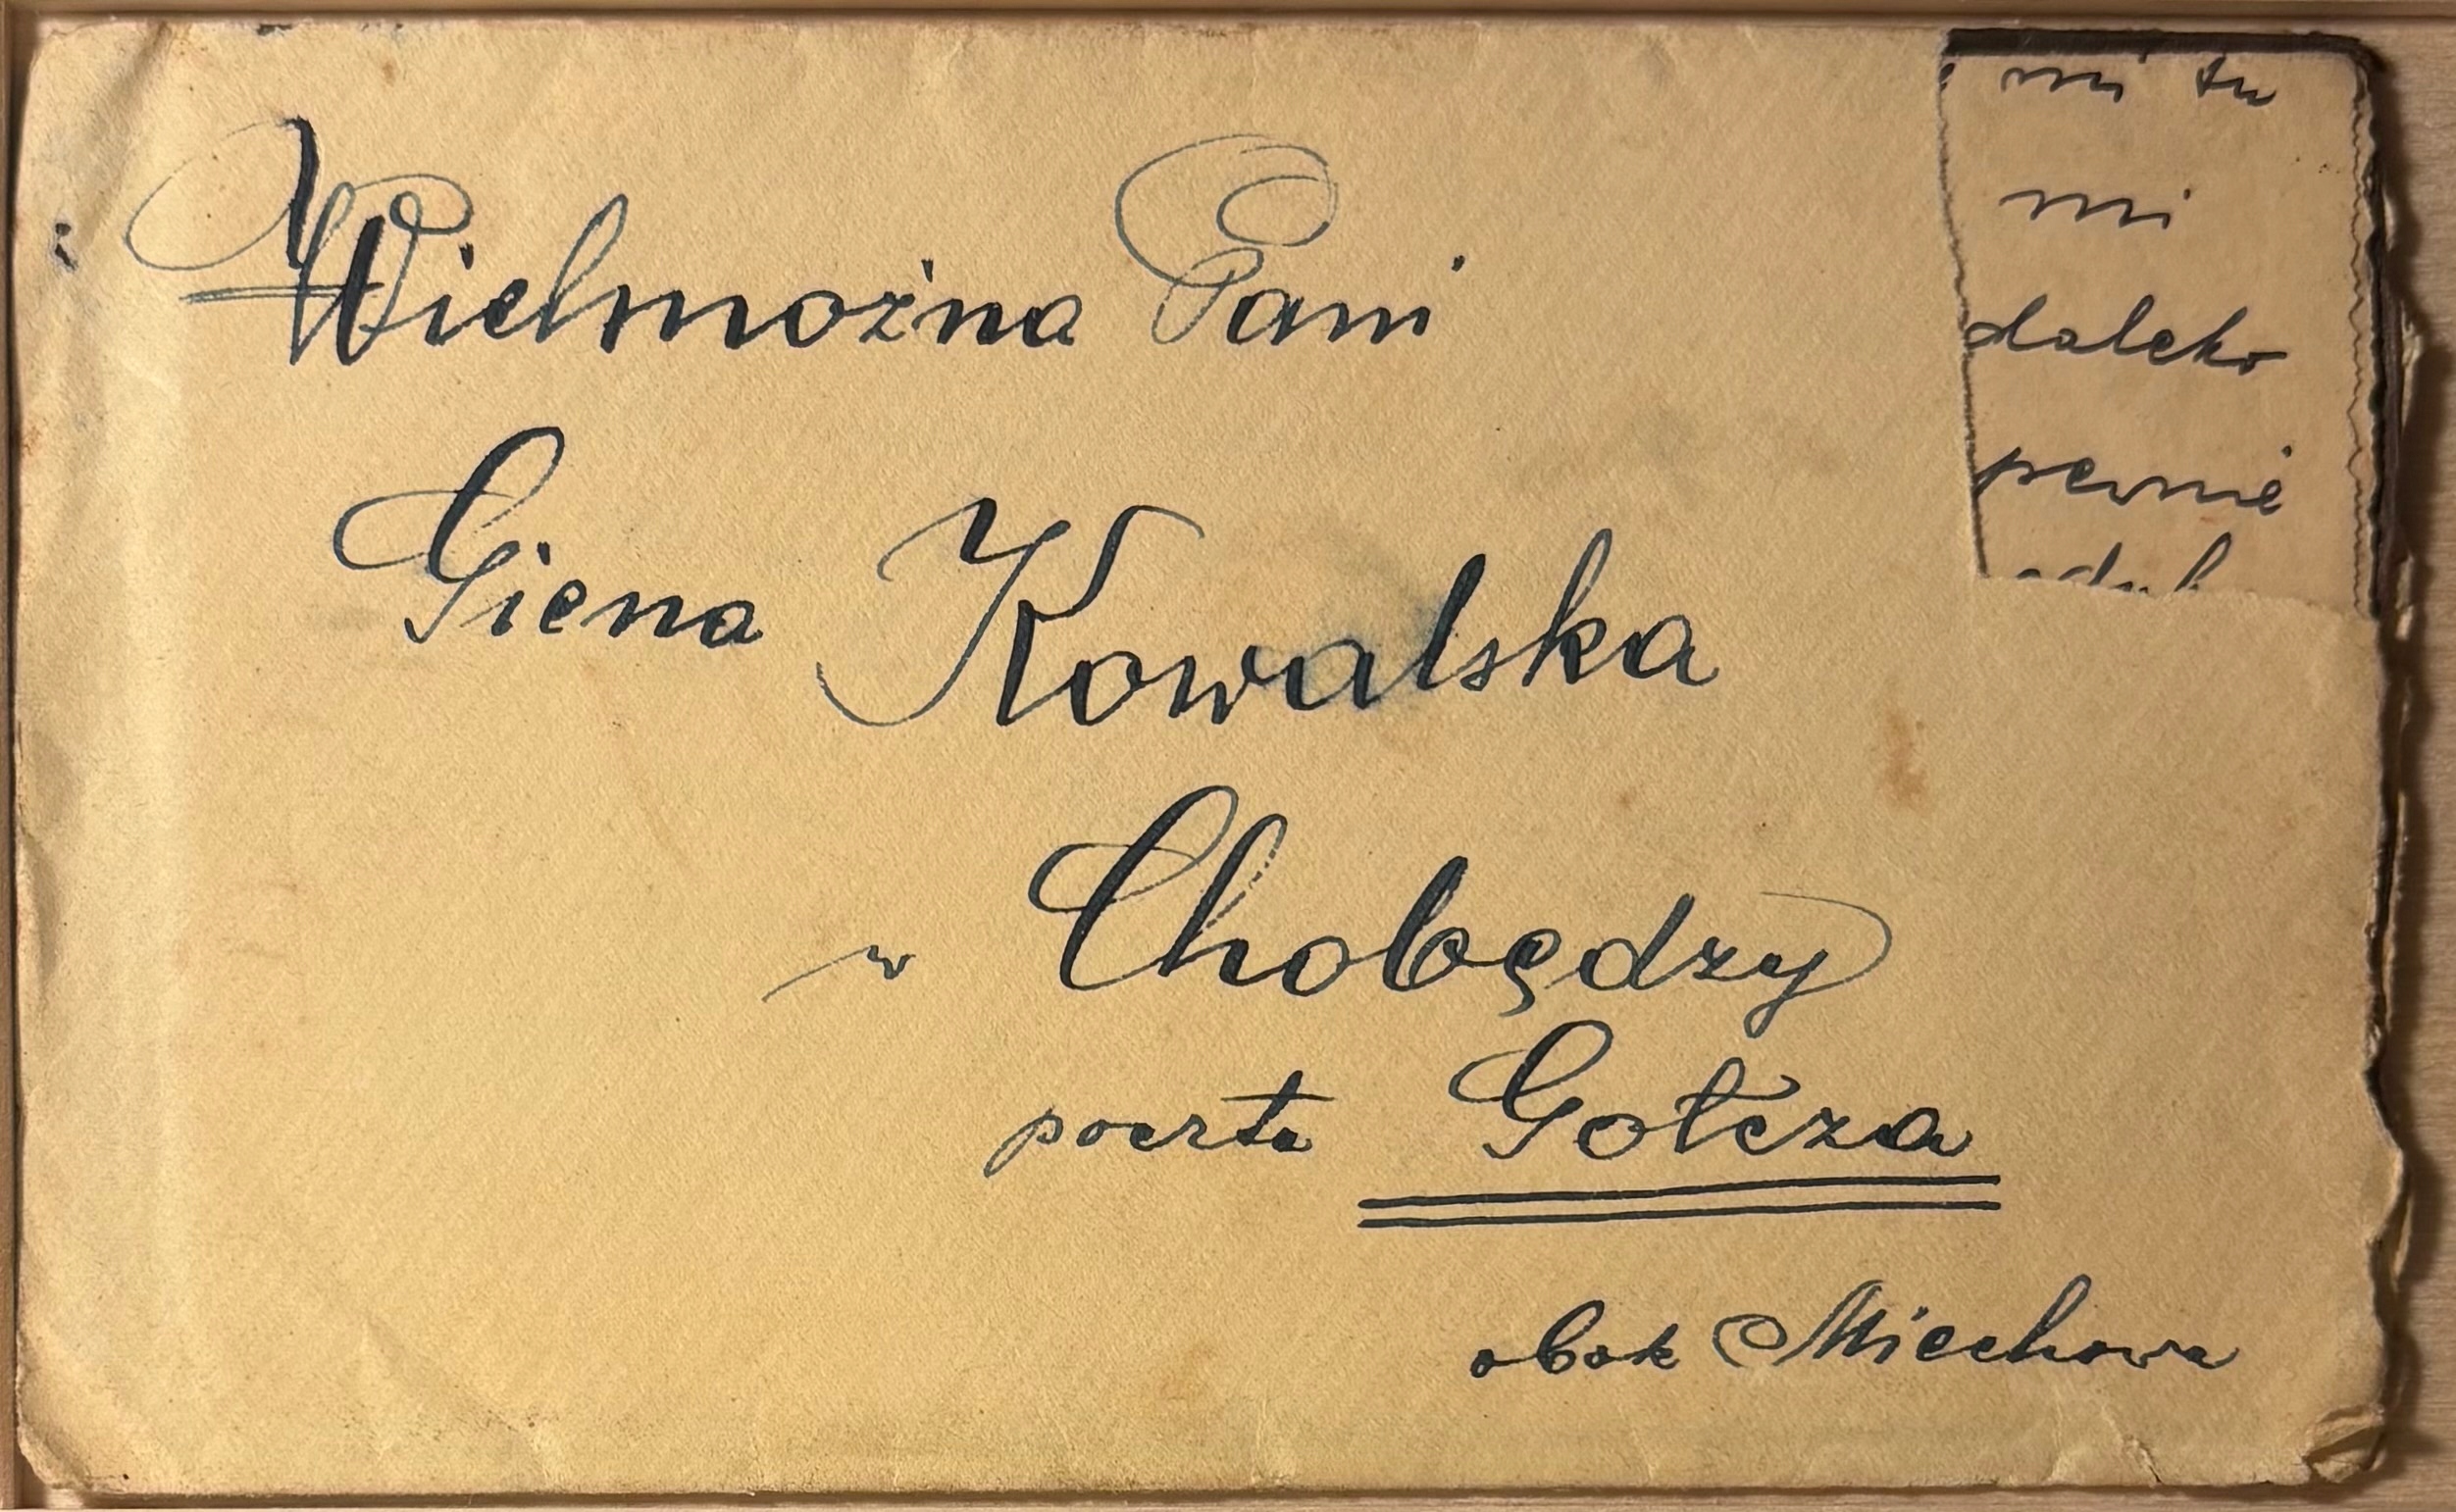 Wielmożna Pani
Giena Kowalska
w Chobędzy
poczta Gołcza
obok Miechowa
mi tu
mi
daleko
pewnie